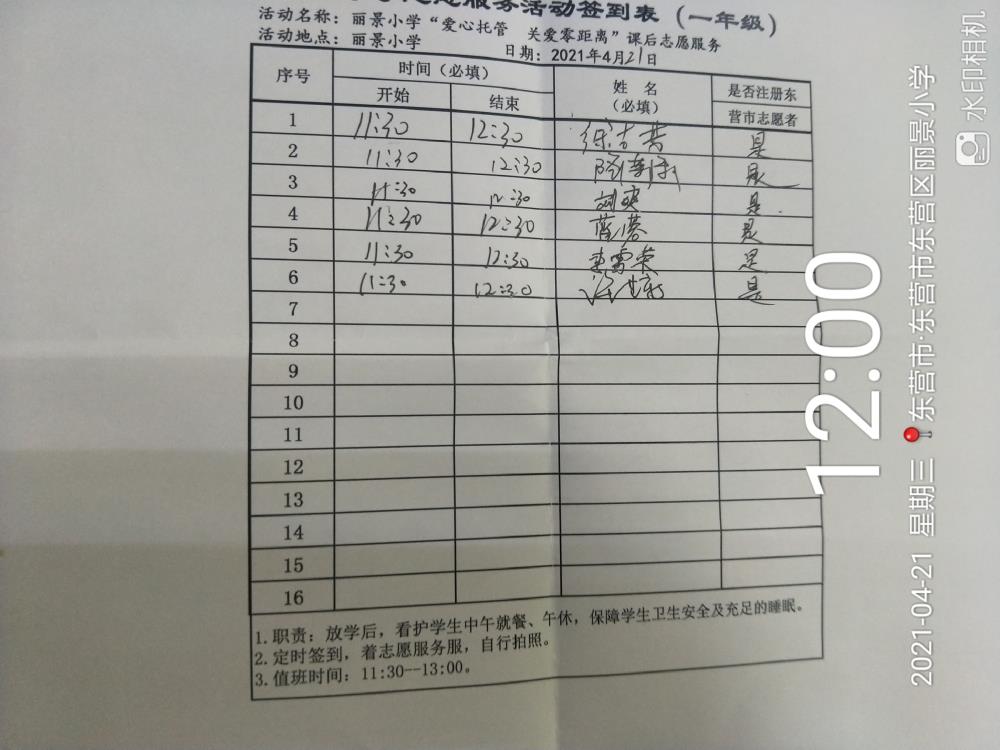 愿服务活动签到表（一年级）
活动名称：丽景小学“爱心托管 关爱零距离”课后志愿服务
活动地点：丽景小学 日期：2021年4月21日
序号 时间（必填） 姓名（必填） 是否注册东营市志愿者
开始 结束
1 11:30 12:30 是
2 11:30 12:30 是
3 11:30 12:30 刘爽 是
4 11:30 12:30 是
5 11:30 12:30 是
6 11:30 12:30 是
7
8
9
10
11
12
13
14
15
16
1.职责：放学后，看护学生中午就餐、午休，保障学生卫生安全及充足的睡眠。
2.定时签到，着志愿服务服，自行拍照。
3.值班时间：11:30--13:00。
12:00
2021-04-21 星期三 东营市·东营市东营区丽景小学
水印相机